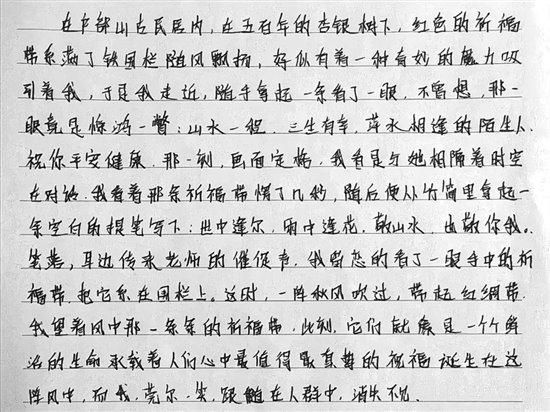 在卢崇山古民居内，在五百年的杏银树下，红色的祈福
带系满了铁围栏随风飘扬，好似有着一种奇妙的魔力吸
引着我，于是我走近，随手拿起一条看了一眼，不曾想，那一
眼竟是惊鸿一瞥：山水一程，三生有幸，萍水相逢的陌生人，
祝你平安健康。那一刻，画面定格，我看是与她相隔着时空
在对话，我看着那条祈福带愣了几秒，随后便从竹筒里拿起一
条空白的提笔写下：世中逢尔，雨中逢花，敬山水，也敬你我。
笔落，耳边传来老师的催促声，我留恋的看了一眼手中的祈
福带，把它系在围栏上。这时，一阵秋风吹过，带起红绸带，
我望着风中那一条条的祈福带，此刻，它们就像是一个个鲜
活的生命承载着人们心中最值得最真挚的祝福诞生在这
阵风中，而我，莞尔一笑，跟随在人群中，消失不见。